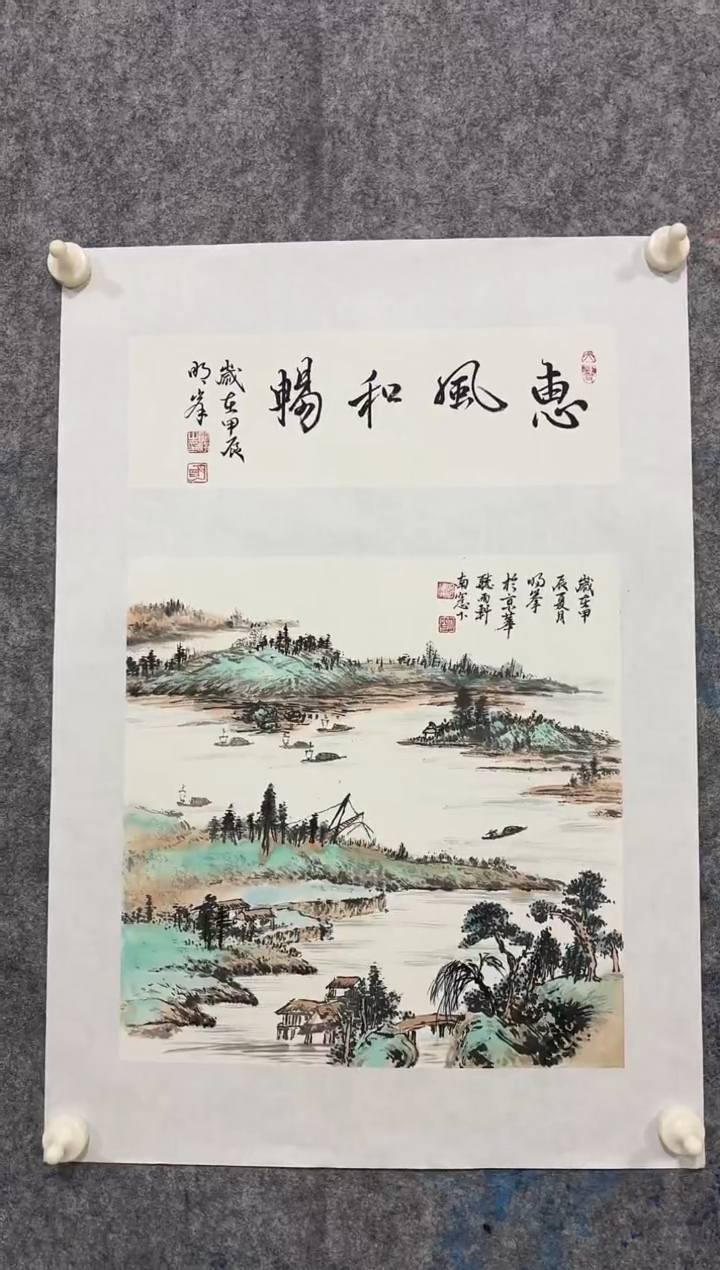 惠風和暢
歲在甲辰
明峯
歲在甲
辰夏月
明峯
於京華
聽雨軒
南窓下